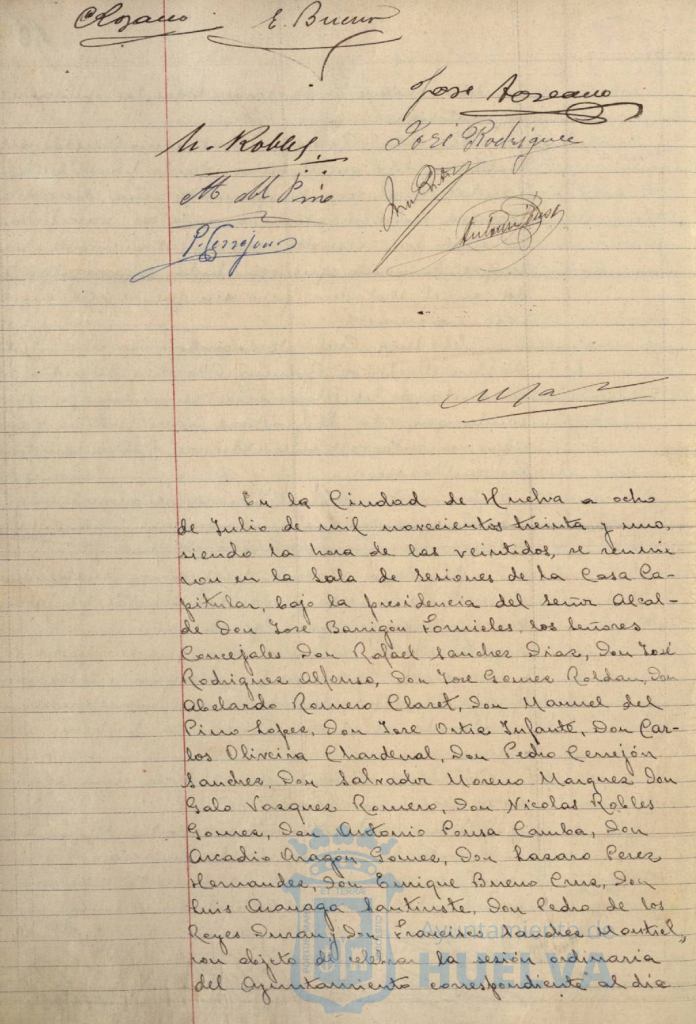 E. Bueno
N. Robles
José Rodriguez
M. del Pino
P. Cerrejon
En la Ciudad de Huelva a ocho
de Julio de mil novecientos treinta y uno,
siendo la hora de las veintidos, se reunie
ron en la Sala de Sesiones de la Casa Ca-
pitular, bajo la presidencia del Señor Alcal-
de Don José Barrigón Fornieles, los Señores
Concejales Don Rafael Sanchez Diaz, Don José
Rodriguez Alfonso, Don José Gomez Roldan, Don
Abelardo Romero Claret, Don Manuel del
Pino Lopez, Don José Ortiz Infante, Don Car-
los Oliveira Chardenal, Don Pedro Cerrejón
Sanchez, Don Salvador Moreno Marquez Don
Galo Vazquez Romero, Don Nicolas Robles
Gomez, Don Antonio Pousa Camba, Don
Arcadio Aragón Gomez, Don Lazaro Perez
Hernandez, Don Enrique Bueno Cruz, Don
Luis Don Pedro de los
Reyes Duran y Don Francisco Sanchez Montiel,
con objeto de celebrar la sesión ordinaria
del Ayuntamiento correspondiente al dia
Ayuntamiento de
HUELVA